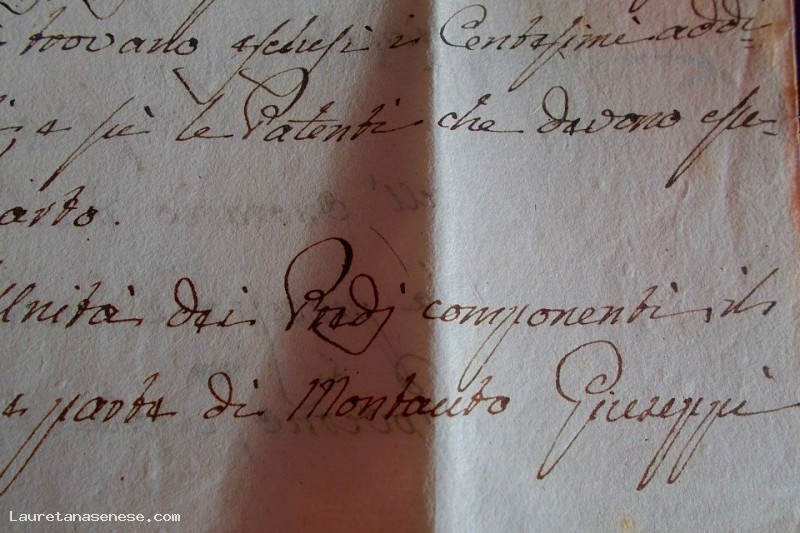 trovano esclusi i Centesimi addi-
e più le Patenti che devono esse-
arto.
Unità dei Podj componenti il
e parte di Montauto Giuseppe
Lauretanasenese.com